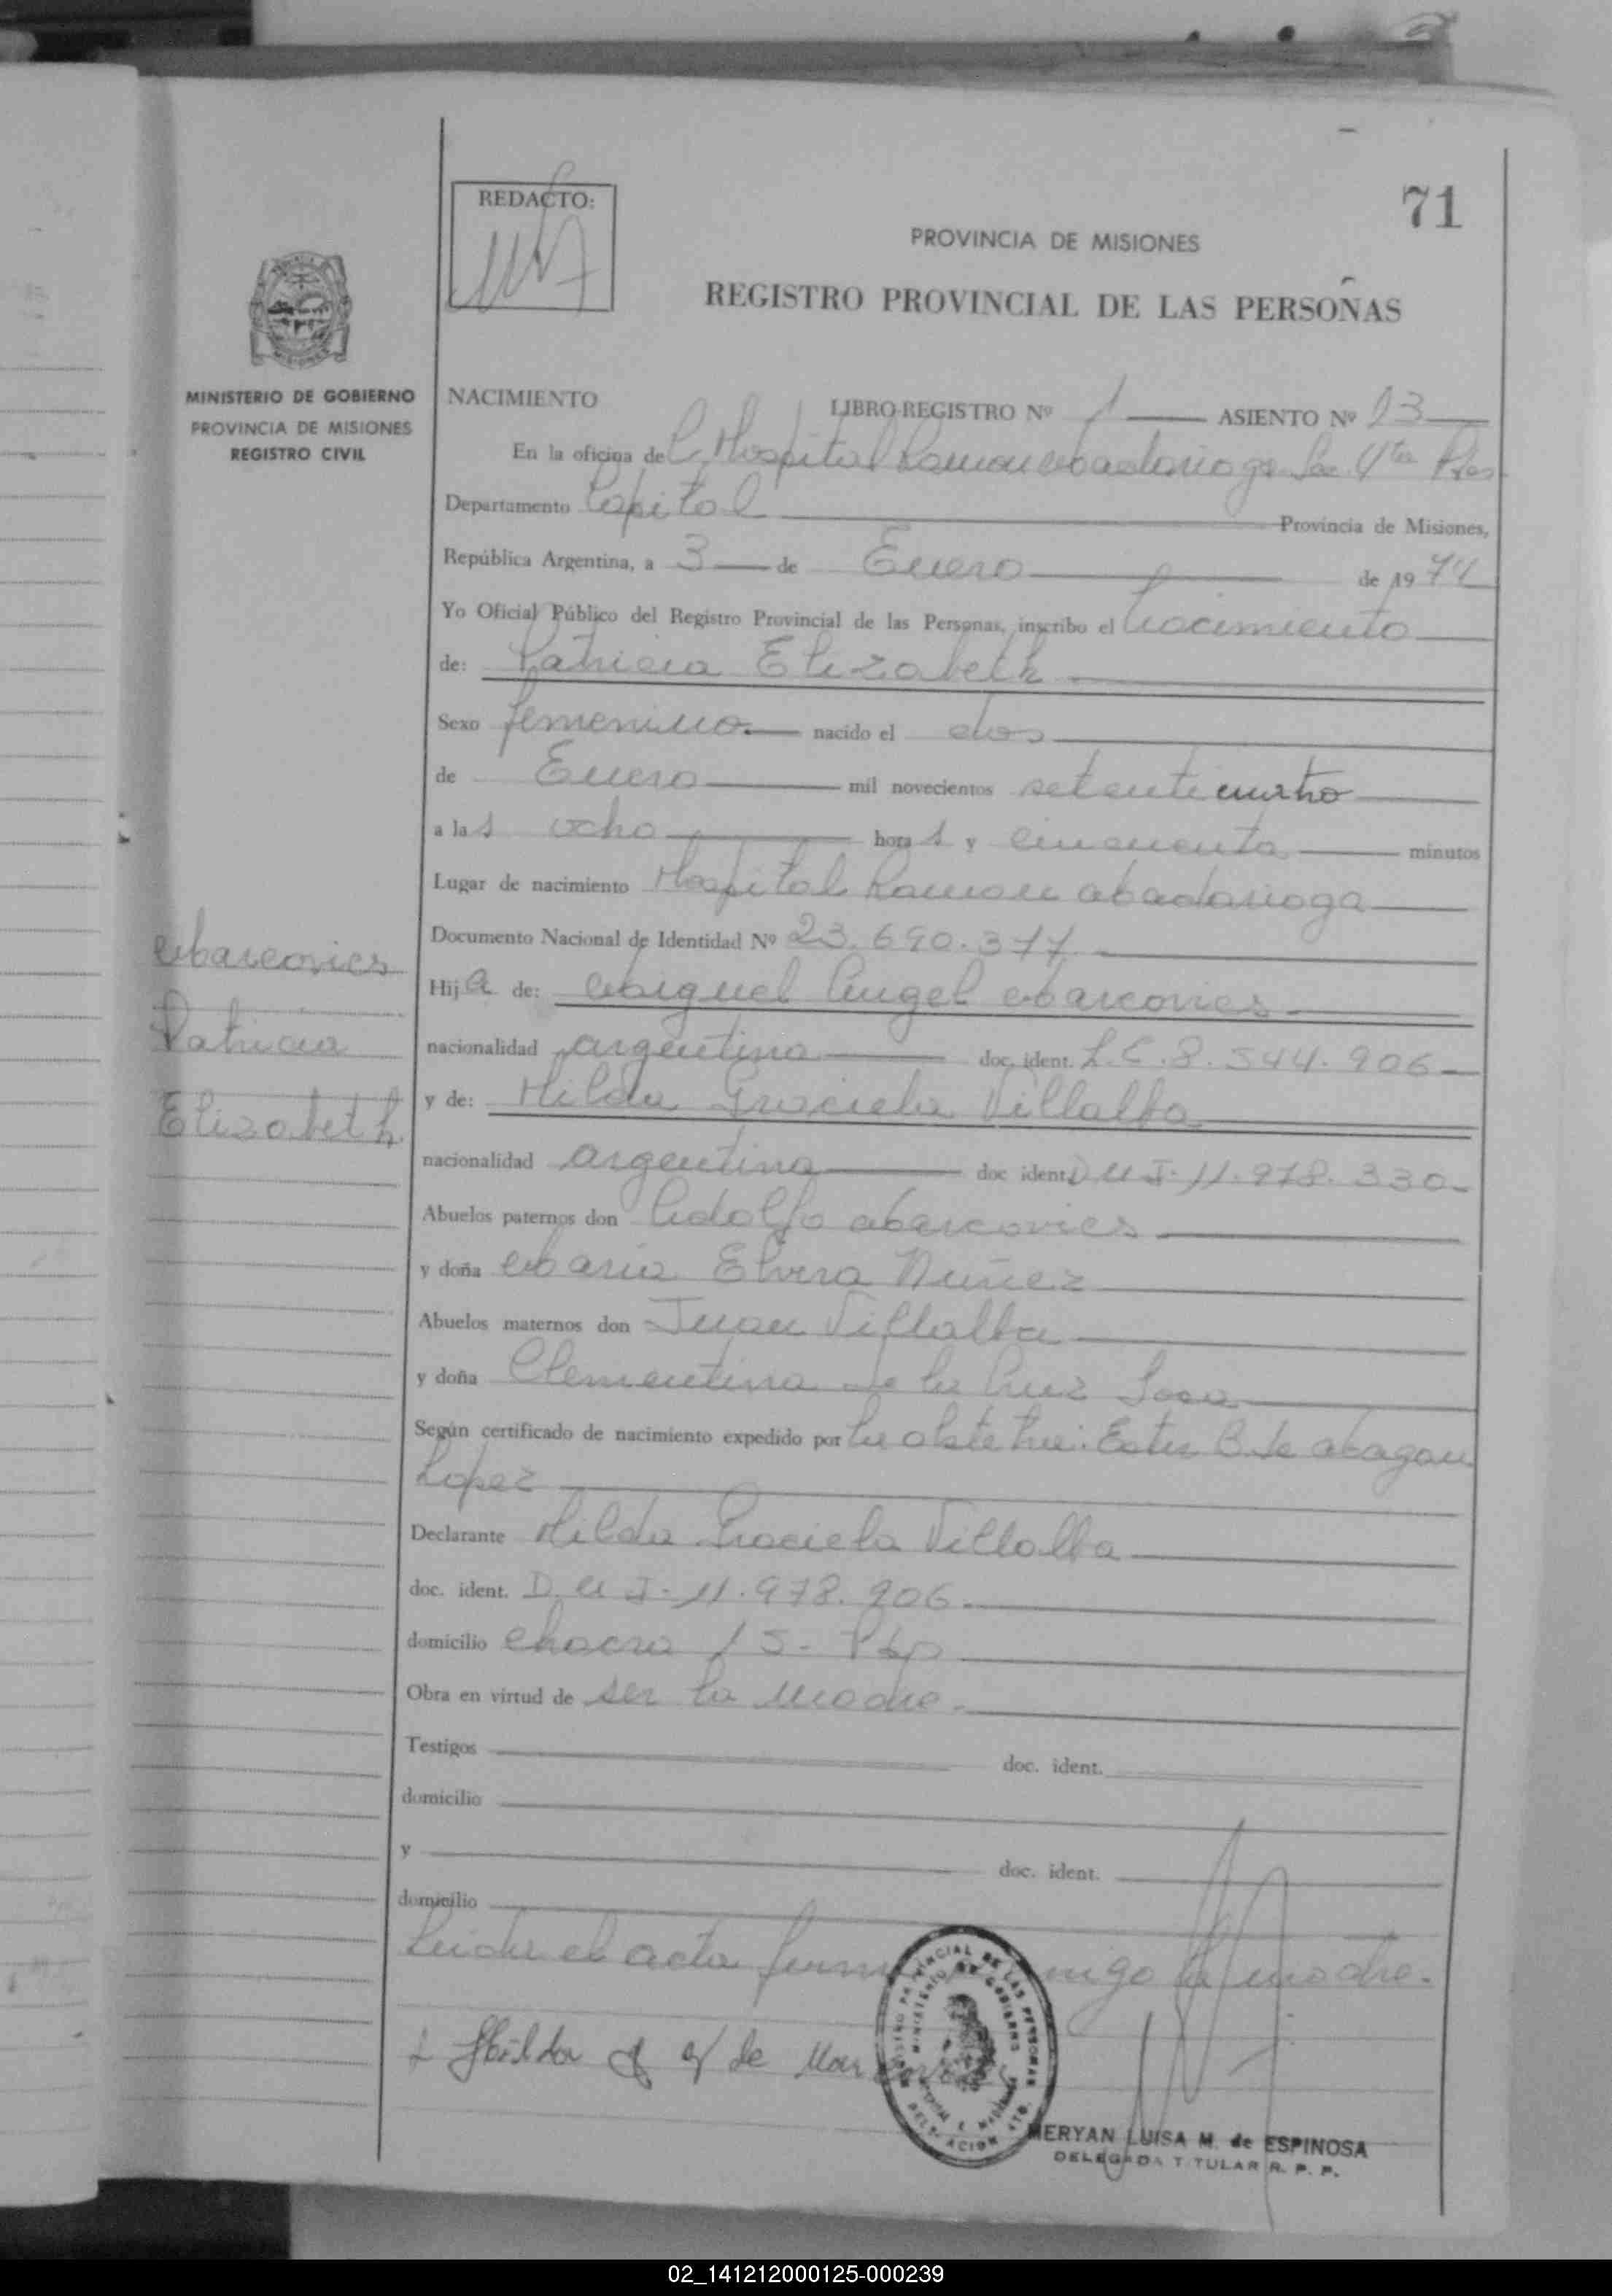 71
REDACTO:
PROVINCIA DE MISIONES
REGISTRO PROVINCIAL DE LAS PERSONAS
MINISTERIO DE GOBIERNO
PROVINCIA DE MISIONES
REGISTRO CIVIL
NACIMIENTO LIBRO-REGISTRO Nº 1 ASIENTO Nº 23
En la oficina de Hospital Ramon Madariaga
Departamento Capital Provincia de Misiones,
República Argentina, a 3 de Enero de 1974
Yo Oficial Público del Registro Provincial de las Personas, inscribo el nacimiento
de: Patricia Elizabeth
Sexo femenino nacido el dos
de Enero mil novecientos setenticuatro
a las ocho horas y cincuenta minutos
Lugar de nacimiento Hospital Ramon Madariaga
Documento Nacional de Identidad Nº 23.690.377
Hija de: Miguel Angel Marcovics
Marcovics
Patricia
Elizabeth.
nacionalidad argentina doc. ident. L.E.8.544.906
y de: Hilda Graciela Villalba
nacionalidad argentina doc ident. D U I. 11.978.330
Abuelos paternos don Adolfo Marcovics
y doña Maria Elvira Nuñez
Abuelos maternos don Juan Villalba
y doña Clementina de la Cruz Sosa
Según certificado de nacimiento expedido por la obstetri: Ester B. de
Lopez
Declarante Hilda Graciela Villalba
doc. ident. D. U I. 11.978.906.
domicilio chacra 15-
Obra en virtud de ser la madre.
Testigos doc. ident.
domicilio
y doc. ident.
domicilio
Leida el acta la madre.
Hilda de
REGISTRO PROVINCIAL DE LAS PERSONAS
MINISTERIO DE GOBIERNO
MERYAN LUISA M. de ESPINOSA
DELEGADA TITULAR R. P. P.
02_141212000125-000239